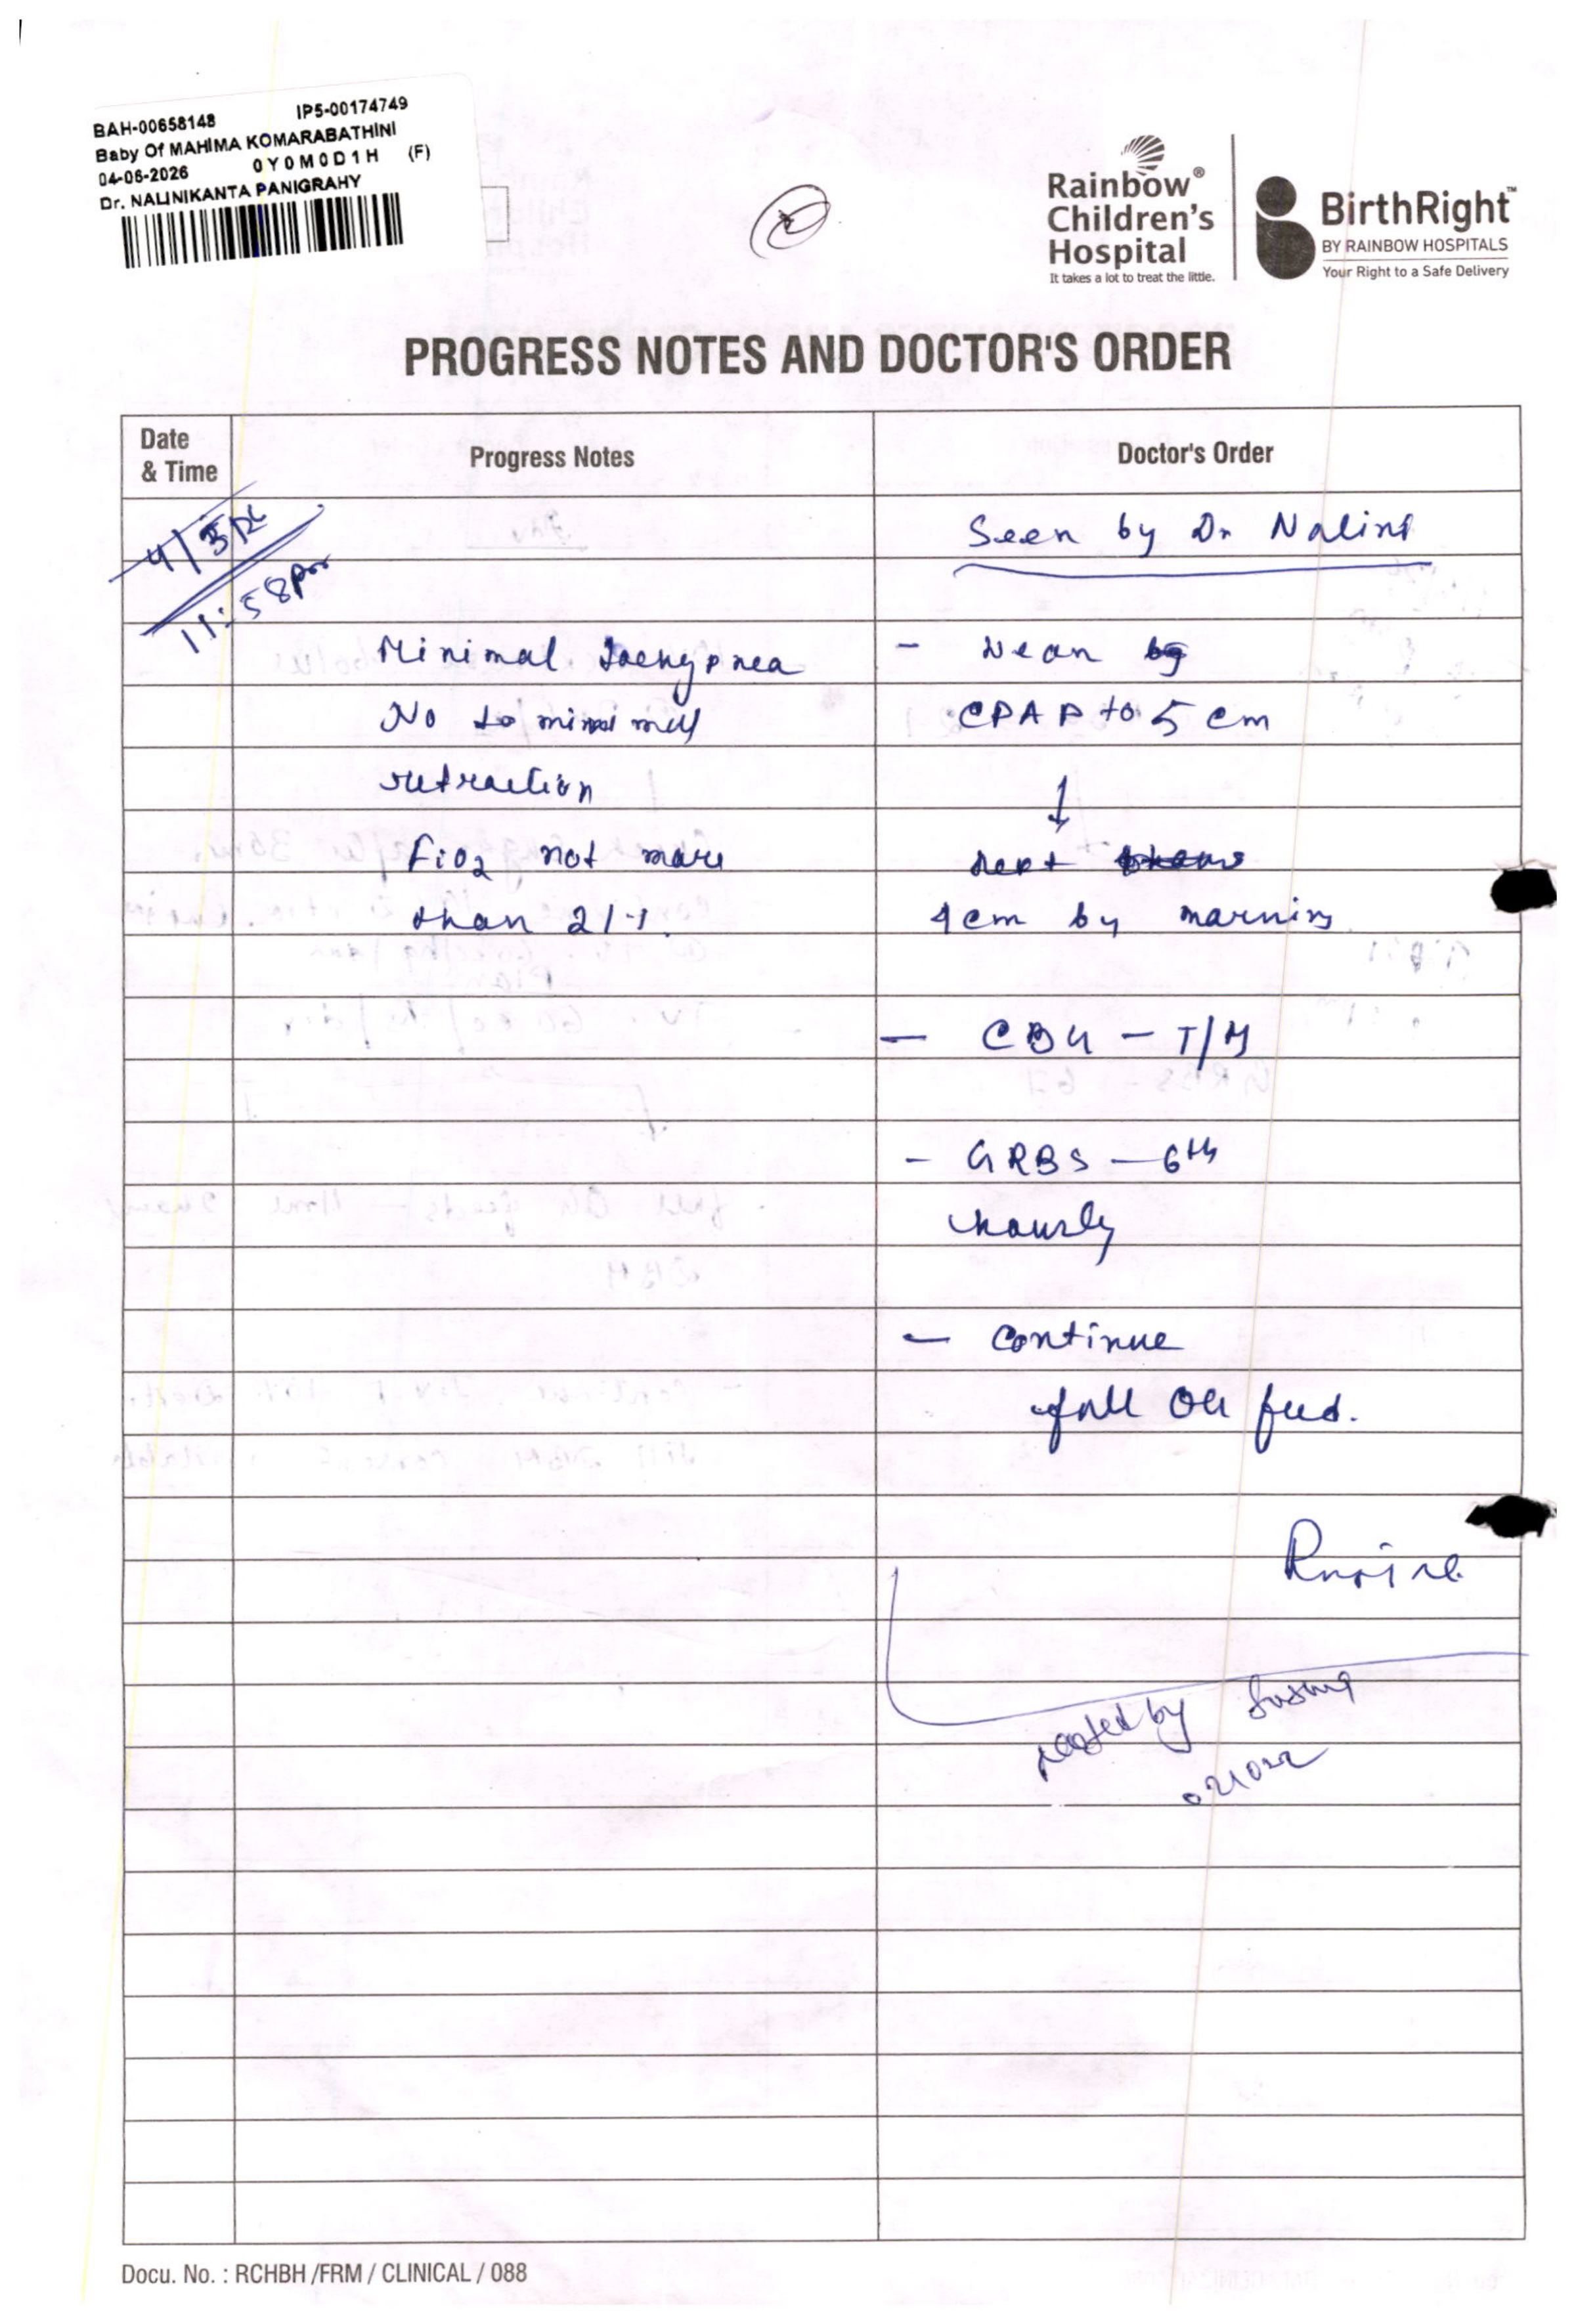 BAH-00658148 IP5-00174749
Baby Of MAHIMA KOMARABATHINI
04-06-2026 0Y0M0D1H (F)
Dr. NALINIKANTA PANIGRAHY
Rainbow®
Children's
Hospital
It takes a lot to treat the little.
BirthRight™
BY RAINBOW HOSPITALS
Your Right to a Safe Delivery
PROGRESS NOTES AND DOCTOR'S ORDER
Date & Time Progress Notes Doctor's Order
Seen by Dr Nalini
11:58pm
Minimal tachypnea - Wean
No to minimal CPAP to 5 cm
retraction ↓
FiO2 not more next
than 21%. 4cm by morning
- CBG - T/M
- GRBS - 6th
hourly
- continue
full OG feed.
noted by
Docu. No. : RCHBH /FRM / CLINICAL / 088